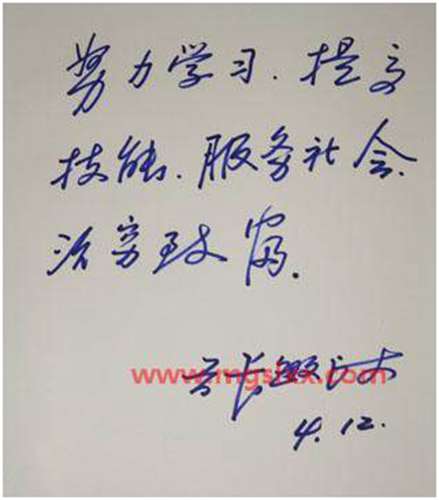 努力学习.提高
技能.服务社会.
治穷致富.
www.mgstxx.com
4.12.